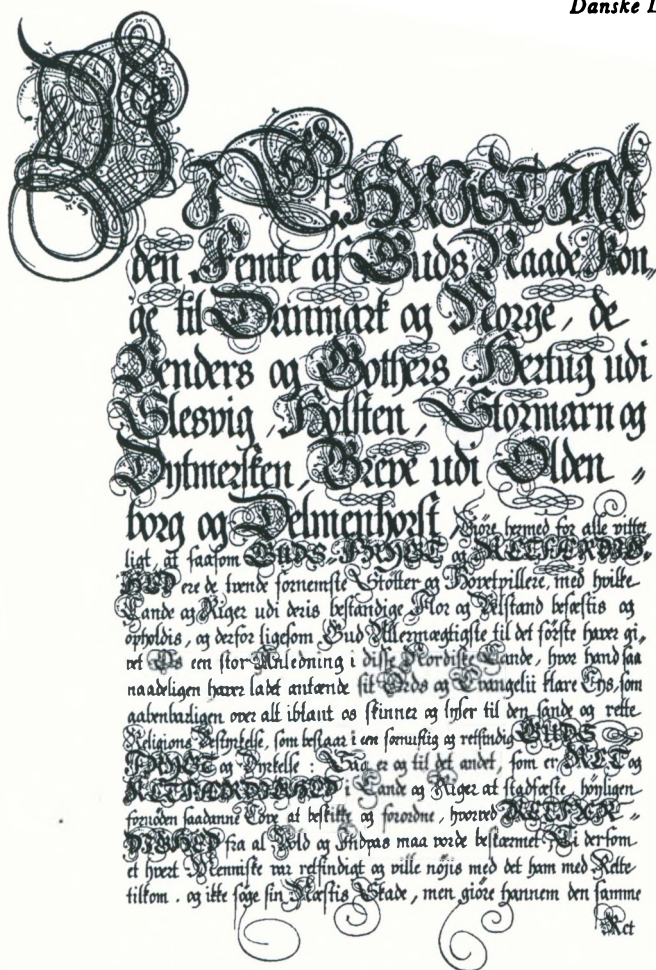 Danske L
VI CHRISTIAN
den Femte af Guds Naade Kon„
ge til Danmark og Norge, de
Venders og Gothers, Hertug udi
Slesvig, Holsten, Stormarn og
Dytmersken, Greve udi Olden„
borg og Delmenhorst, Giøre hermed for alle vitter
ligt, at saasom GUDS-FRYGT og RETFÆRDIG-
HED ere de tvende fornemste Støtter og Hovetpillere, med hvilke
Lande og Riger udi deris bestandige Flor og Velstand befæstis og
opholdis, og derfor ligesom Gud Allermægtigste til det første haver gi-
vet Os een stor Anledning i disse Nordiske Lande, hvor hand saa
naadeligen haver ladet antænde sit Ords og Evangelii klare Lys, som
aabenbarligen over alt iblant os skinner og lyser til den sande og rette
Religions Bestyrkelse, som bestaar i een fornuftig og retsindig GUDS-
FRYGT og Dyrkelse: Saa er og til det andet, som er RET og
RETFÆRDIGHED i Lande og Riger at stadfæste, høyligen
fornøden saadanne Love at beskikke og forordne, hvorved RETFÆR-
DIGHED fra al Vold og Indpas maa vorde beskærmet. Thi dersom
et hvert Menniske var retsindigt og ville nøjis med det ham med Rette
tilkom, og ikke søge sin Næstis Skade, men giøre hannem den samme
Ret